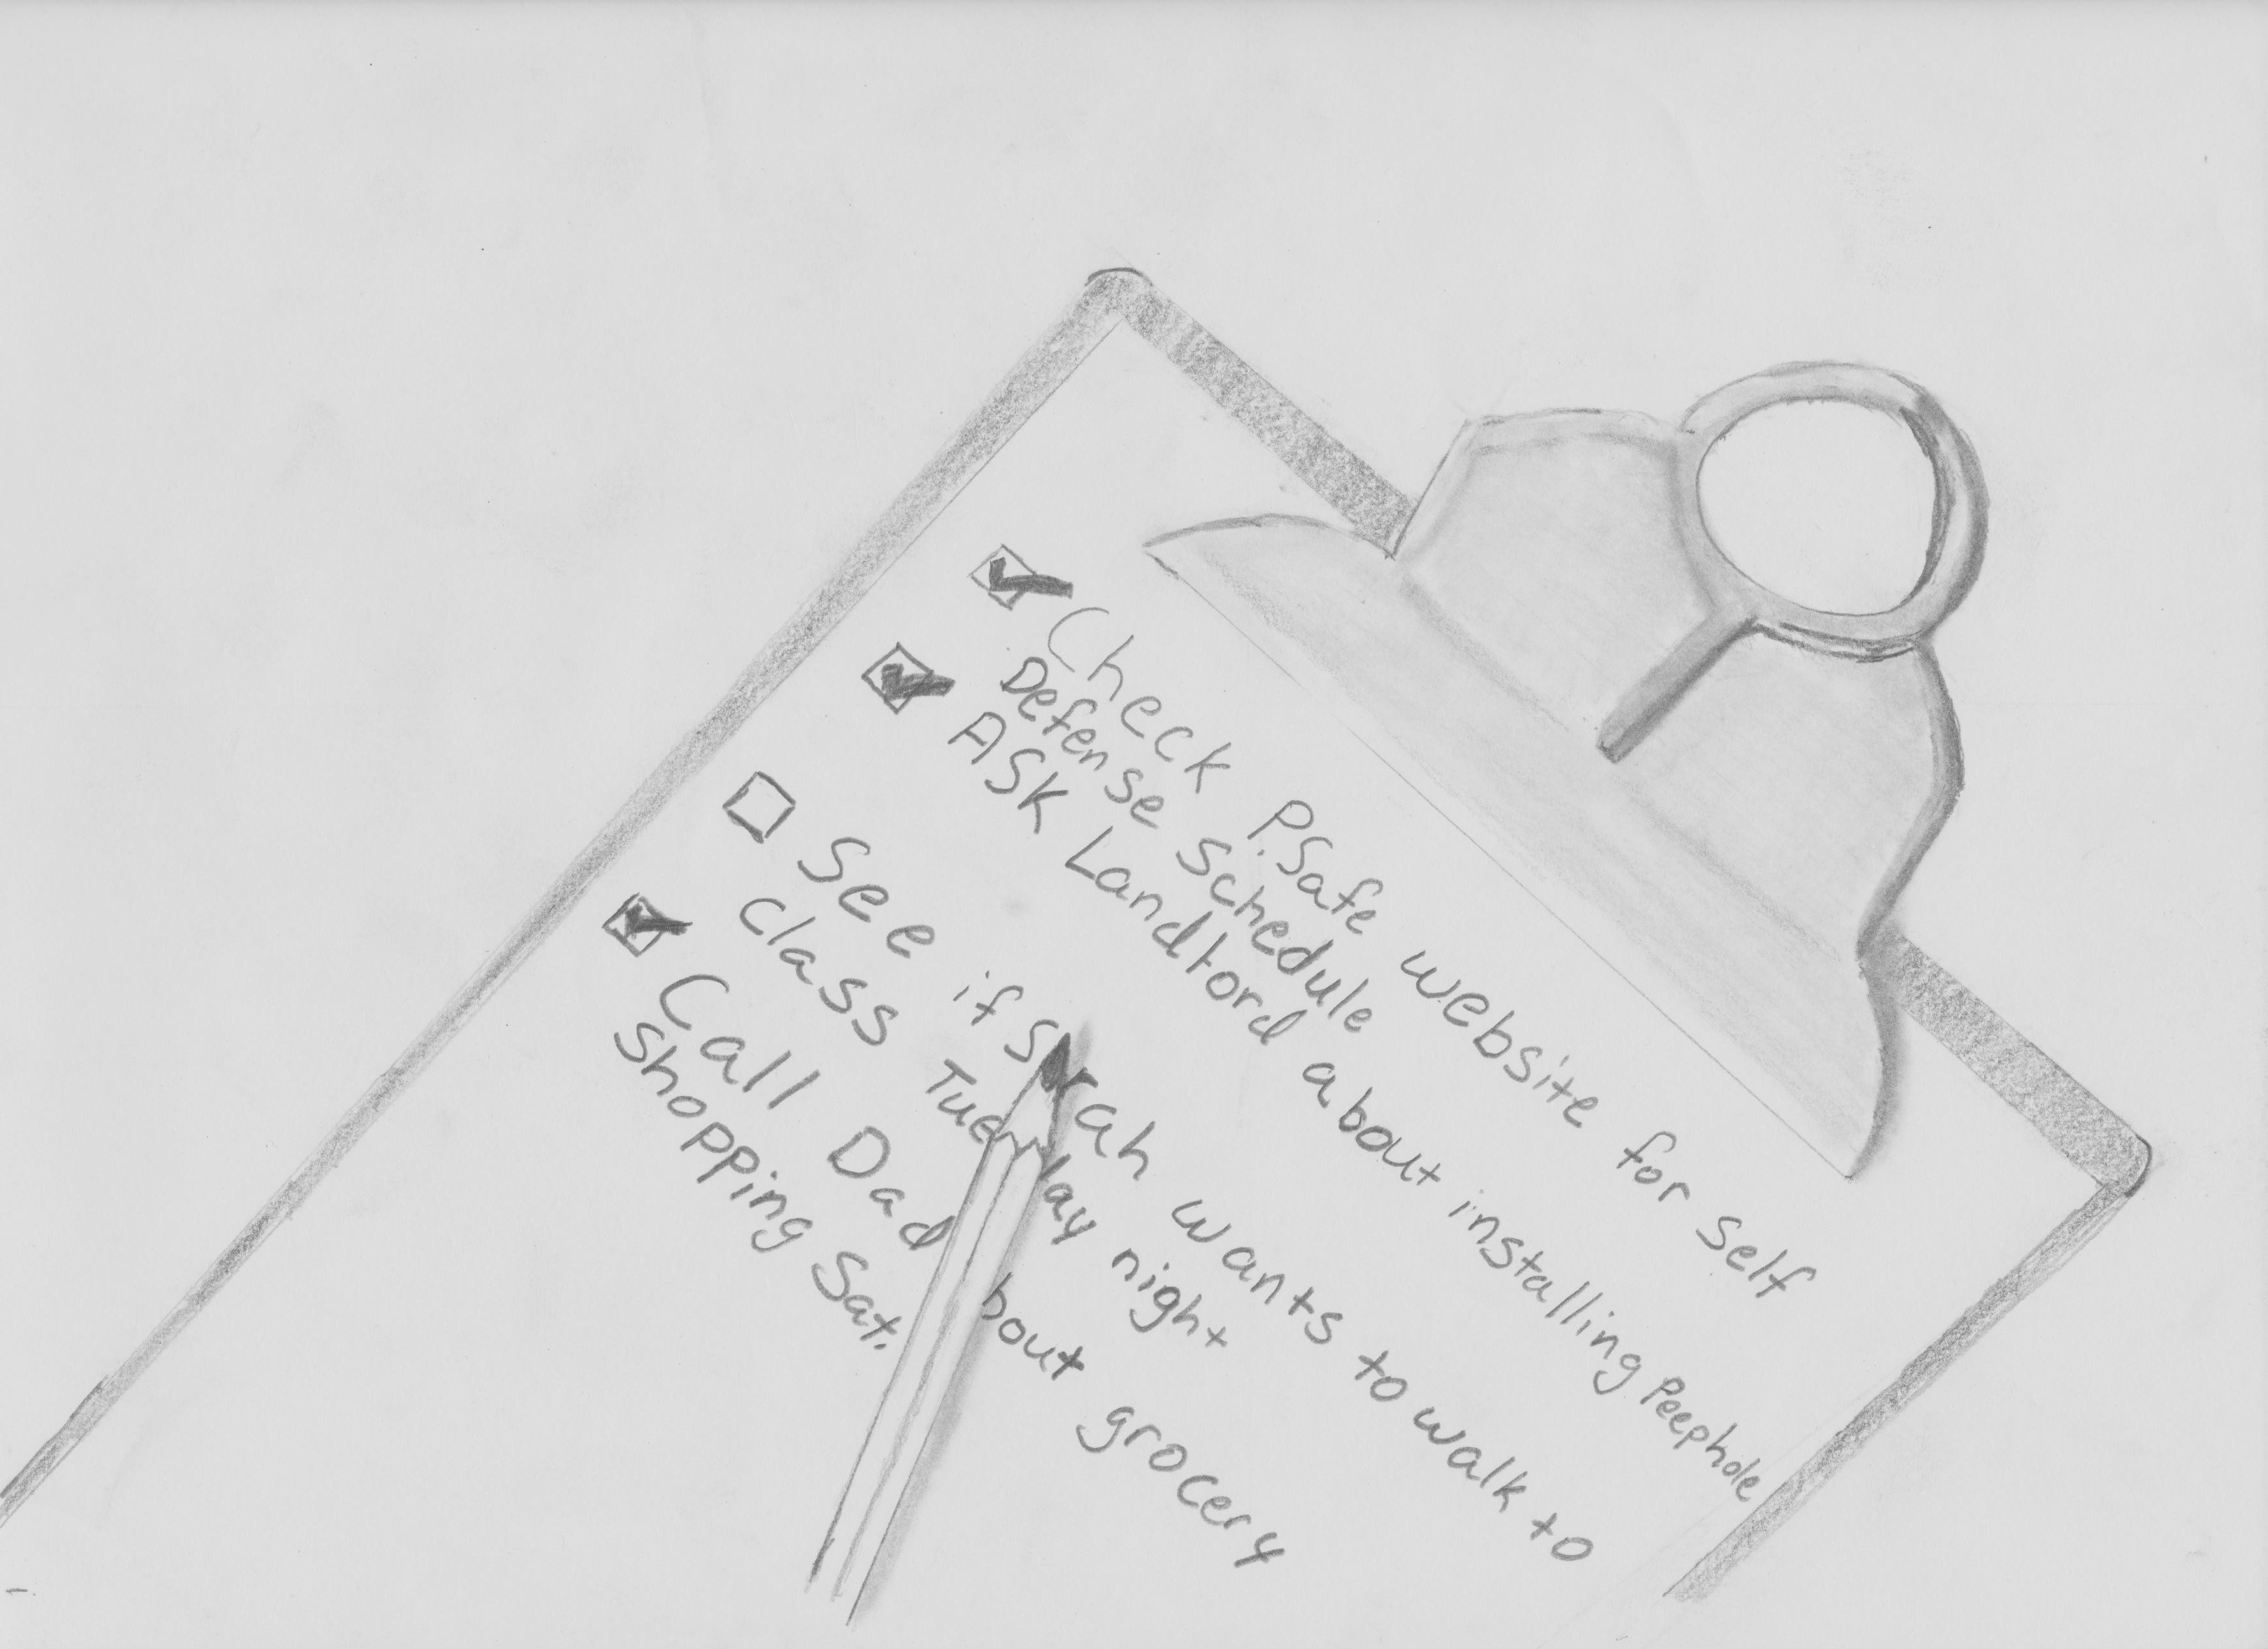 Check P.Safe website for Self
Defense Schedule
ASK Landlord about installing Peephole
See if Sarah wants to walk to
class Tuesday night
Call Dad bout grocery
Shopping Sat.